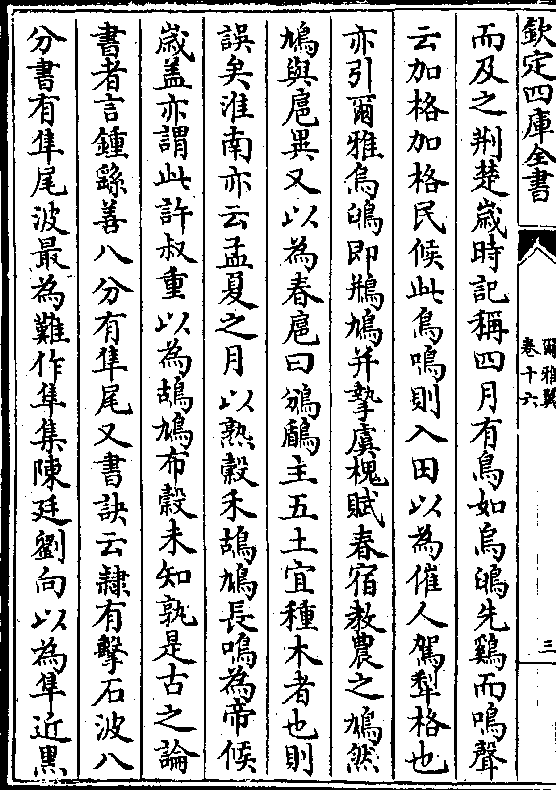 欽定四庫全書
爾雅翼
卷十六
三
而及之荆楚歲時記稱四月有鳥如烏鴭先鷄而鳴聲
云加格加格民候此鳥鳴則入田以為催人駕犁格也
亦引爾雅烏鴭即鳩并摯虞槐賦春宿教農之鳩然
鳩與扈異又以為春扈曰鳻鶞主五土宜種木者也則
誤矣淮南亦云孟夏之月以熟穀禾鴣鳩長鳴為帝候
歲盖亦謂此許叔重以為鴣鳩布穀未知孰是古之論
書者言鍾繇善八分有隼尾又書訣云隷有擊石波八
分書有隼尾波最為難作隼集陳廷劉向以為隼近黒